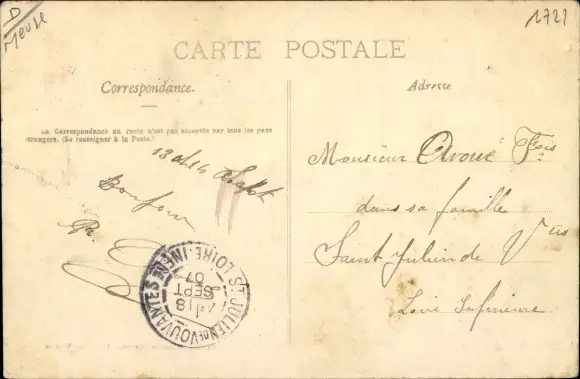 D
Meuse
1721
CARTE POSTALE
Correspondance.
Adresse
La Correspondance au recto n'est pas acceptée par tous les pays
étrangers. (Se renseigner à la Poste.)
Sept
Bonjour
Monsieur
dans sa famille
Saint Julien de V
Loire Inférieure
ST JULIEN DE VOUVANTES
LOIRE-INFRE
18
SEPT
07